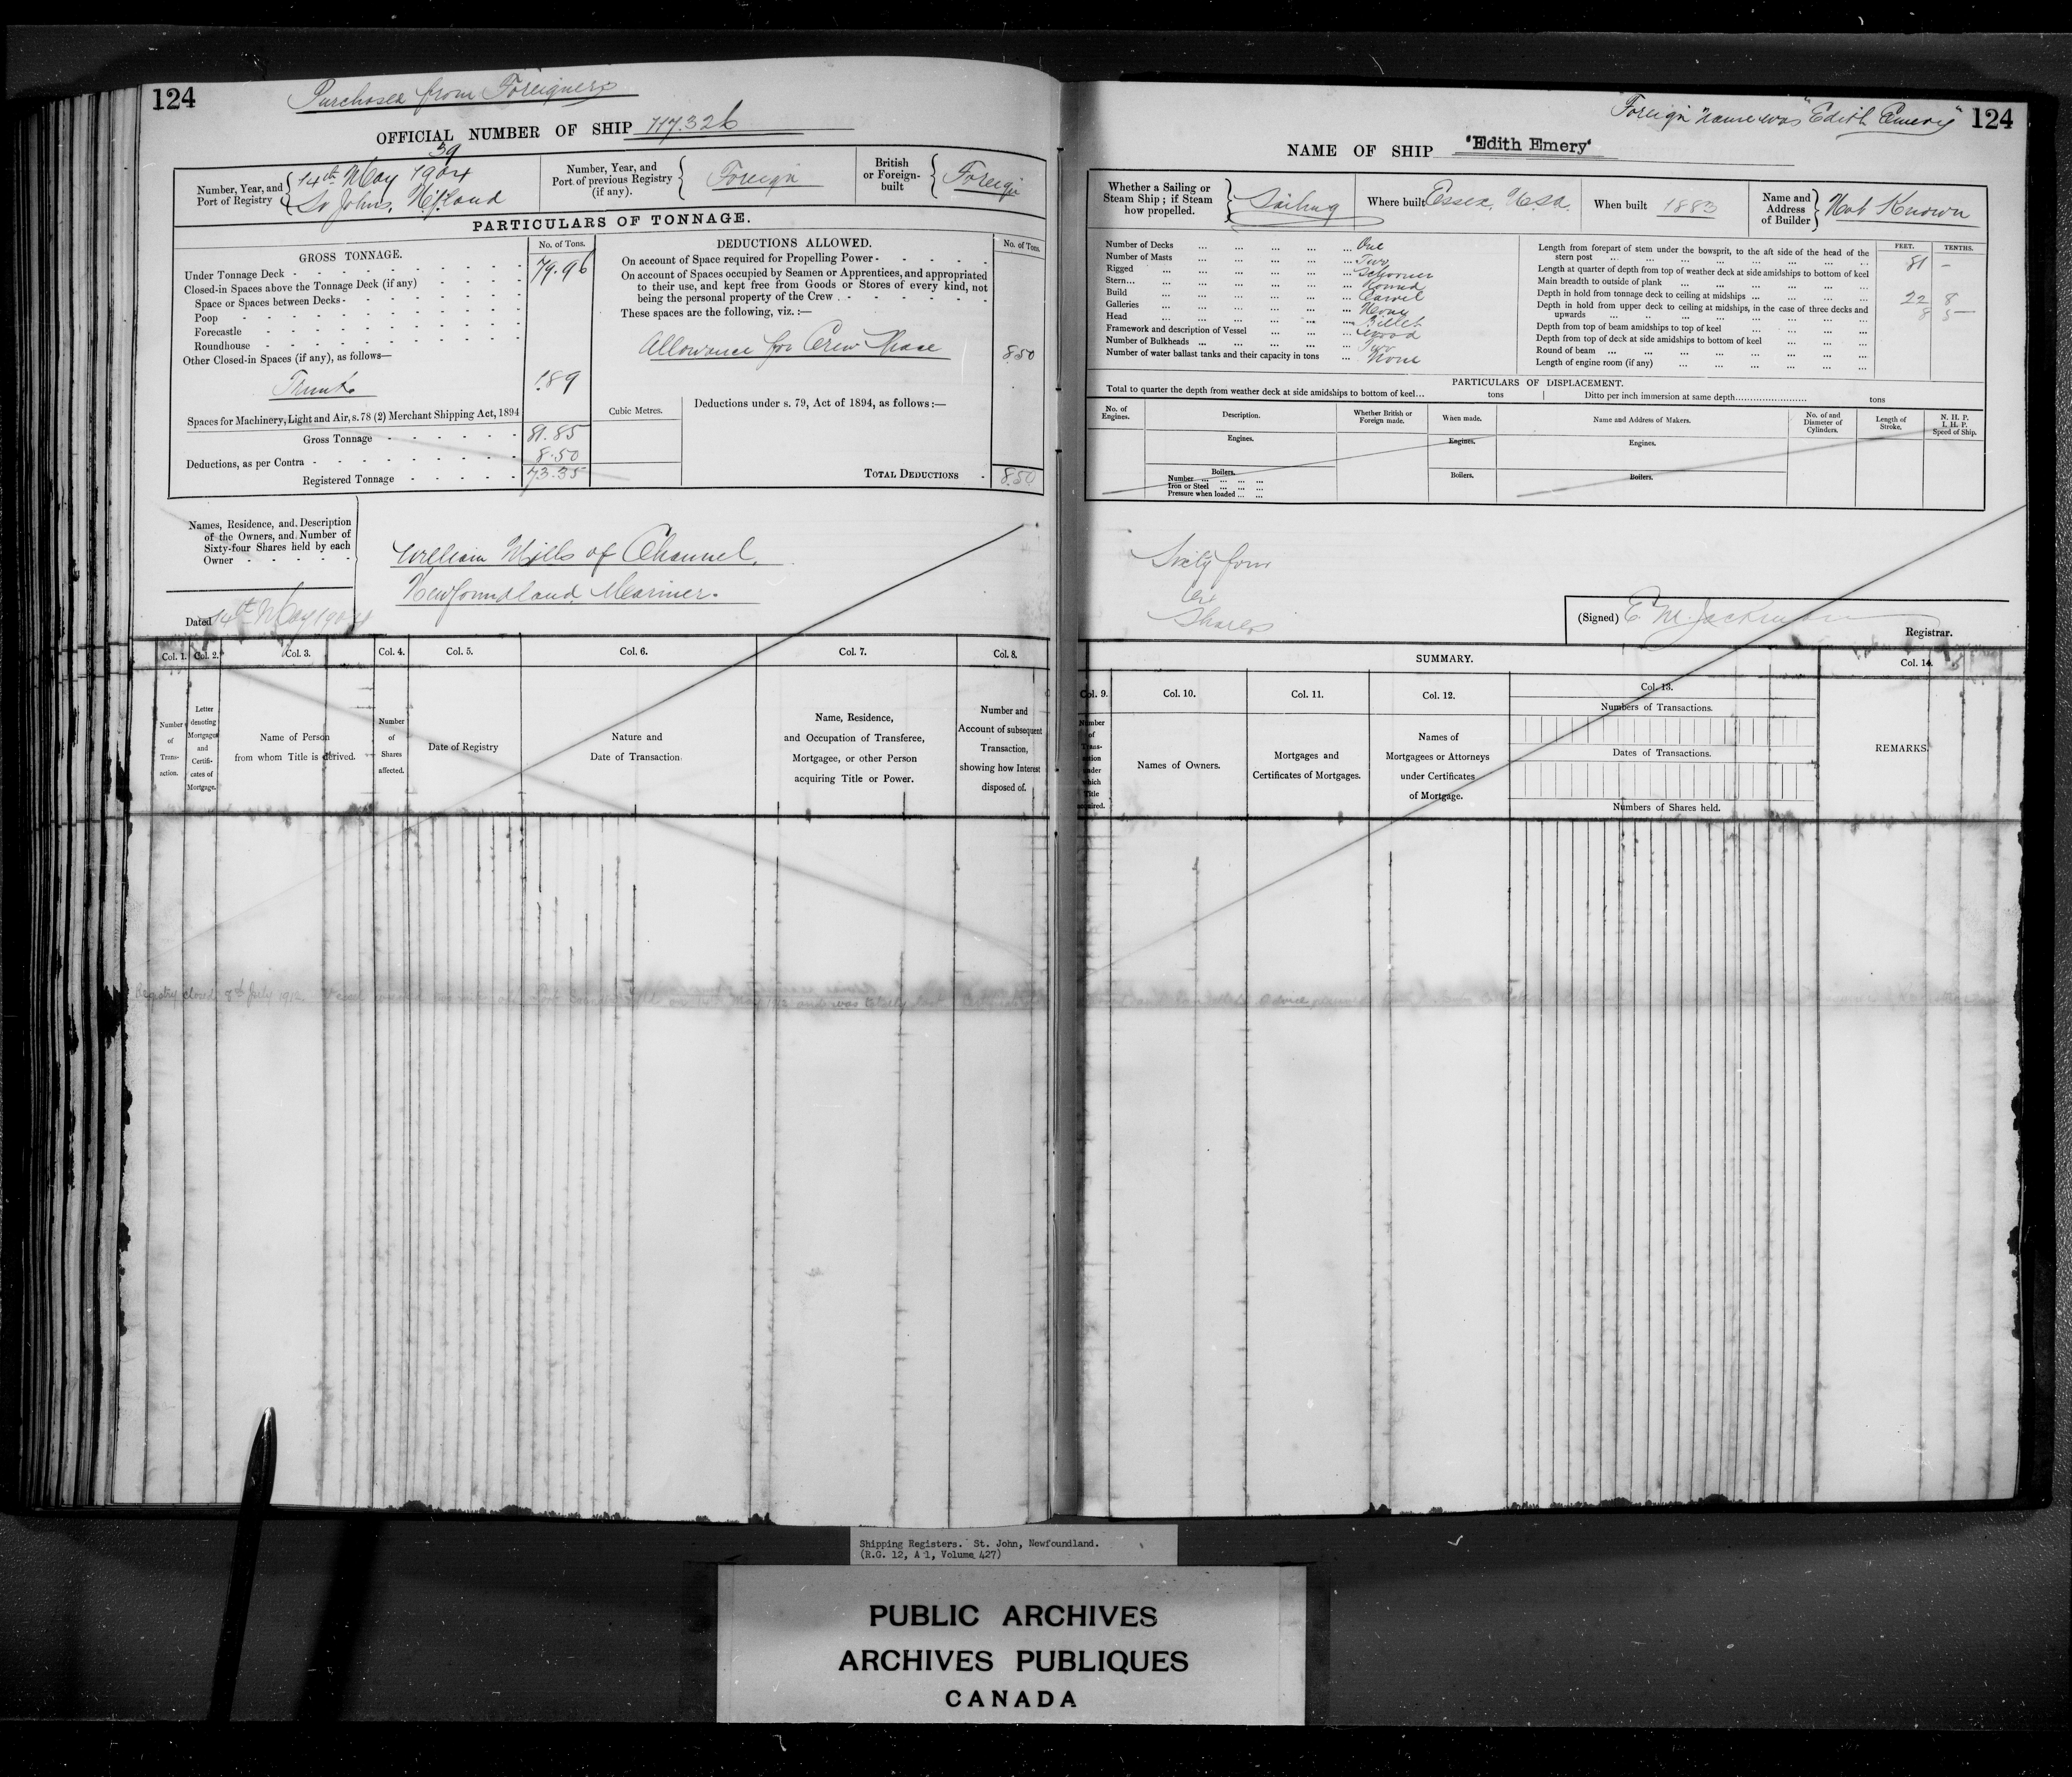 124
Purchased from Foreigners
OFFICIAL NUMBER OF SHIP 117.326
39
Number, Year, and Port of Registry 14th May 1904 St Johns, Nfland
Number, Year, and Port of previous Registry (if any). Foreign
British or Foreign-built Foreign
PARTICULARS OF TONNAGE.
GROSS TONNAGE.
No. of Tons.
Under Tonnage Deck 79.96
Closed-in Spaces above the Tonnage Deck (if any)
Space or Spaces between Decks
Poop
Forecastle
Roundhouse
Other Closed-in Spaces (if any), as follows—
Trunk 1.89
Spaces for Machinery, Light and Air, s. 78 (2) Merchant Shipping Act, 1894
Gross Tonnage 81.85
Deductions, as per Contra 8.50
Registered Tonnage 73.35
DEDUCTIONS ALLOWED.
No. of Tons.
On account of Space required for Propelling Power
On account of Spaces occupied by Seamen or Apprentices, and appropriated
to their use, and kept free from Goods or Stores of every kind, not
being the personal property of the Crew
These spaces are the following, viz.:—
Allowance for Crew Space 8.50
Cubic Metres.
Deductions under s. 79, Act of 1894, as follows:—
TOTAL DEDUCTIONS 8.50
Names, Residence, and Description
of the Owners, and Number of
Sixty-four Shares held by each
Owner
William Mills of Channel,
Newfoundland. Mariner.
Dated 14th May 1904
Col. 1.
Col. 2.
Col. 3.
Col. 4.
Col. 5.
Col. 6.
Col. 7.
Col. 8.
Number of Transaction.
Letter denoting Mortgages and Certificates of Mortgage.
Name of Person
from whom Title is derived.
Number of Shares affected.
Date of Registry
Nature and
Date of Transaction.
Name, Residence,
and Occupation of Transferee,
Mortgagee, or other Person
acquiring Title or Power.
Number and
Account of subsequent
Transaction,
showing how Interest
disposed of.
Registry closed 8th July 1912
on 14th May 1912 and was totally lost
Foreign name was "Edith Emery"
124
NAME OF SHIP "Edith Emery"
Whether a Sailing or Steam Ship; if Steam how propelled. Sailing
Where built Essex. U.S.A.
When built 1883
Name and Address of Builder Not Known
Number of Decks One
Number of Masts Two
Rigged Schooner
Stern Round
Build Carvel
Galleries None
Head Billet
Framework and description of Vessel Wood
Number of Bulkheads Two
Number of water ballast tanks and their capacity in tons None
FEET.
TENTHS.
Length from forepart of stem under the bowsprit, to the aft side of the head of the
stern post 81 –
Length at quarter of depth from top of weather deck at side amidships to bottom of keel
Main breadth to outside of plank 22 8
Depth in hold from tonnage deck to ceiling at midships 8 5
Depth in hold from upper deck to ceiling at midships, in the case of three decks and
upwards
Depth from top of beam amidships to top of keel
Depth from top of deck at side amidships to bottom of keel
Round of beam
Length of engine room (if any)
PARTICULARS OF DISPLACEMENT.
Total to quarter the depth from weather deck at side amidships to bottom of keel... tons
Ditto per inch immersion at same depth tons
No. of Engines.
Description.
Whether British or Foreign made.
When made.
Name and Address of Makers.
No. of and Diameter of Cylinders.
Length of Stroke.
N. H. P.
I. H. P.
Speed of Ship.
Engines.
Engines.
Engines.
Boilers.
Number
Iron or Steel
Pressure when loaded
Boilers.
Boilers.
Sixty four
Shares
(Signed) E. M. Jackman
Registrar.
SUMMARY.
Col. 9.
Col. 10.
Col. 11.
Col. 12.
Col. 13.
Col. 14.
Number of Transaction under which Title acquired.
Names of Owners.
Mortgages and
Certificates of Mortgages.
Names of
Mortgagees or Attorneys
under Certificates
of Mortgage.
Numbers of Transactions.
Dates of Transactions.
Numbers of Shares held.
REMARKS.
Shipping Registers. St. John, Newfoundland.
(R.G. 12, A 1, Volume 427)
PUBLIC ARCHIVES
ARCHIVES PUBLIQUES
CANADA